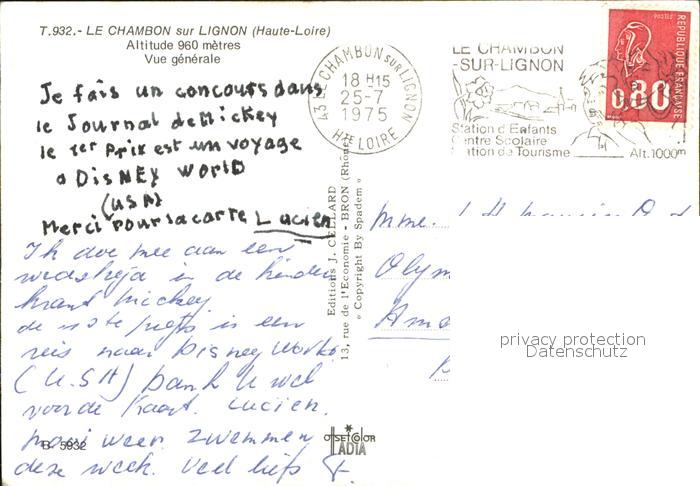 T.932.- LE CHAMBON sur LIGNON (Haute-Loire)
Altitude 960 mètres
Vue générale
Je fais un concours dans
le Journal de Mickey
le 1er Prix est un voyage
a DisNEY WORLD
(USA)
Merci Pour la carte Lucien
Ik doe mee aan een
wedstrijd in de kinder
krant Mickey.
de 1ste prijs is een
reis naar Disney World
(U.S.A) Dank U wel
voor de kaart. Lucien.
mooi weer. zwemmen
deze week. Veel liefs
B 5932
Editions J. CELLARD
13, rue de l'Economie - BRON (Rhône)
« Copyright By Spadem »
OFFSETCOLOR
IADIA
43 LE CHAMBON SUR LIGNON
18 H15
25-7
1975
HTE LOIRE
LE CHAMBON
-SUR-LIGNON
Station d'Enfants
Centre Scolaire
Station de Tourisme
Alt. 1000m
REPUBLIQUE FRANÇAISE
0,80
Mme.
Olym
Ams
privacy protection
Datenschutz